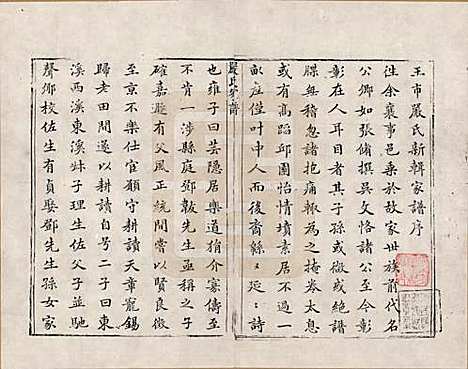 王市嚴氏新輯家譜序
徃余襄事邑乗於故家世族前代名
公卿如張脩撰吳文恪諸公至今彰
彰在人耳目者其子孫或微或絶譜
牒無稽忽諸抱痛輒為之掩卷太息
或有高蹈邱園怡情墳素居不過一
畝庄僅叶中人而後裔縣〻延〻詩
嚴氏家譜
也雍子曰芸隱居樂道捐介寡儔至
不肯一涉縣庭鄧韍先生亟稱之子
確嘉遯有父風正統間嘗以賢良徵
至京不樂仕宦願守耕讀天章寵錫
歸老田間遂以耕讀自号二子曰東
溪西溪東溪妹子理生佐子孟並馳
聲鄉校佐生有貞娶鄧先生孫女家